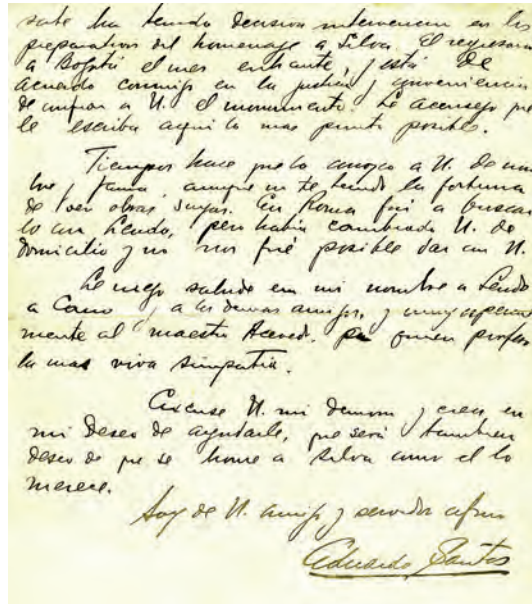 sate ha tenido decisiva intervención en los
preparativos del homenaje a Silva. El regresará
a Bogotá el mes entrante, y está de
acuerdo conmigo en la justicia y conveniencia
de confiar a U. el monumento. Le aconsejo que
le escriba aquí lo mas pronto posible.
Tiempos hace que lo conozco a U. de nom
bre y fama, aunque no he tenido la fortuna
de ver obras suyas. En Roma fuí a buscar
lo con Lleudo, pero había cambiado U. de
domicilio y no nos fué posible dar con U.
Le ruego salude en mi nombre a
a Cano y a los demas amigos, y muy especial
mente al maestro Acevedo, por quien profeso
la mas viva simpatía.
Excuse U. mi demora y crea en
mi deseo de ayudarle, que será tambien
deseo de que se honre a Silva como el lo
merece.
Soy de U. amigo y servidor afmo
Eduardo Santos